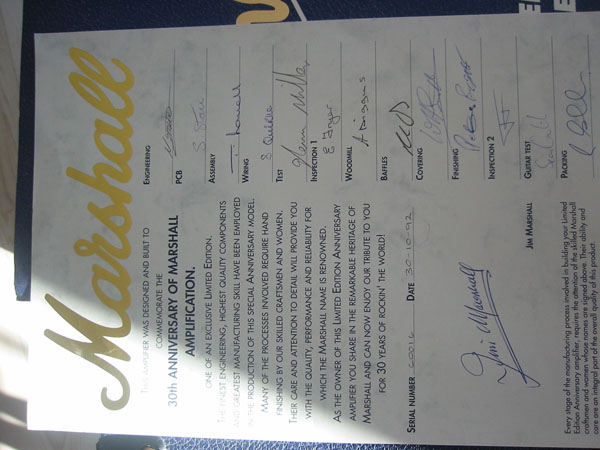 Marshall
THIS AMPLIFIER WAS DESIGNED AND BUILT TO
COMMEMORATE THE
30TH ANNIVERSARY OF MARSHALL
AMPLIFICATION.
ONE OF AN EXCLUSIVE LIMITED EDITION.
THE FINEST ENGINEERING, HIGHEST QUALITY COMPONENTS
AND GREATEST MANUFACTURING SKILL HAVE BEEN EMPLOYED
IN THE PRODUCTION OF THIS SPECIAL ANNIVERSARY MODEL.
MANY OF THE PROCESSES INVOLVED REQUIRE HAND
FINISHING BY OUR SKILLED CRAFTSMEN AND WOMEN.
THEIR CARE AND ATTENTION TO DETAIL WILL PROVIDE YOU
WITH THE QUALITY, PERFORMANCE AND RELIABILITY FOR
WHICH THE MARSHALL NAME IS RENOWNED.
AS THE OWNER OF THIS LIMITED EDITION ANNIVERSARY
AMPLIFIER YOU SHARE IN THE REMARKABLE HERITAGE OF
MARSHALL AND CAN NOW ENJOY OUR TRIBUTE TO YOU
FOR 30 YEARS OF ROCKIN' THE WORLD!
SERIAL NUMBER DATE 30-10-92
Jim Marshall
JIM MARSHALL
Every stage of the manufacturing process involved in building your Limited
Edition Anniversary amplifier, requires the attention of the skilled Marshall
craftsmen and women whose names are signed above. Their ability and
care are an integral part of the overall quality of this product.
ENGINEERING
PCB
ASSEMBLY
WIRING
S Quirke
TEST
INSPECTION 1
WOODMILL
BAFFLES
COVERING
FINISHING
INSPECTION 2
GUITAR TEST
PACKING